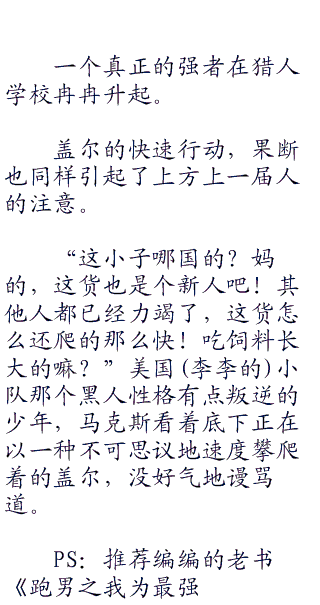 一个真正的强者在猎人
学校冉冉升起。
盖尔的快速行动，果断
也同样引起了上方上一届人
的注意。
“这小子哪国的？妈
的，这货也是个新人吧！其
他人都已经力竭了，这货怎
么还爬的那么快！吃饲料长
大的嘛？”美国(李李的)小
队那个黑人性格有点叛逆的
少年，马克斯看着底下正在
以一种不可思议地速度攀爬
着的盖尔，没好气地谩骂
道。
PS：推荐编编的老书
《跑男之我为最强